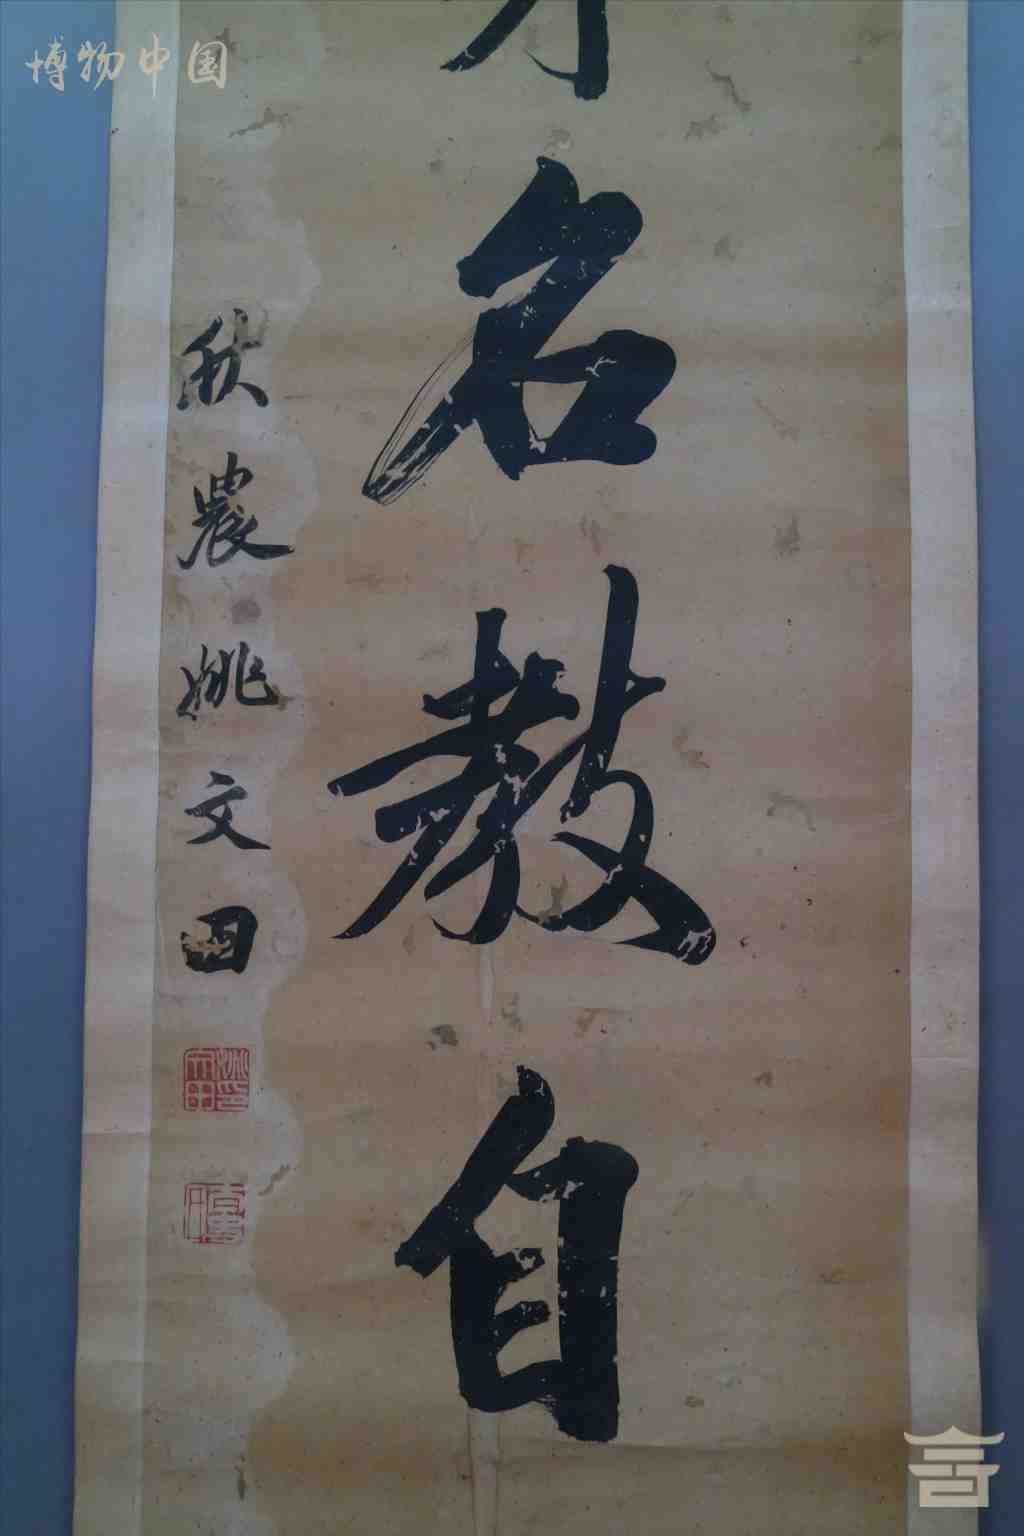 博物中国
名教自
秋農姚文田